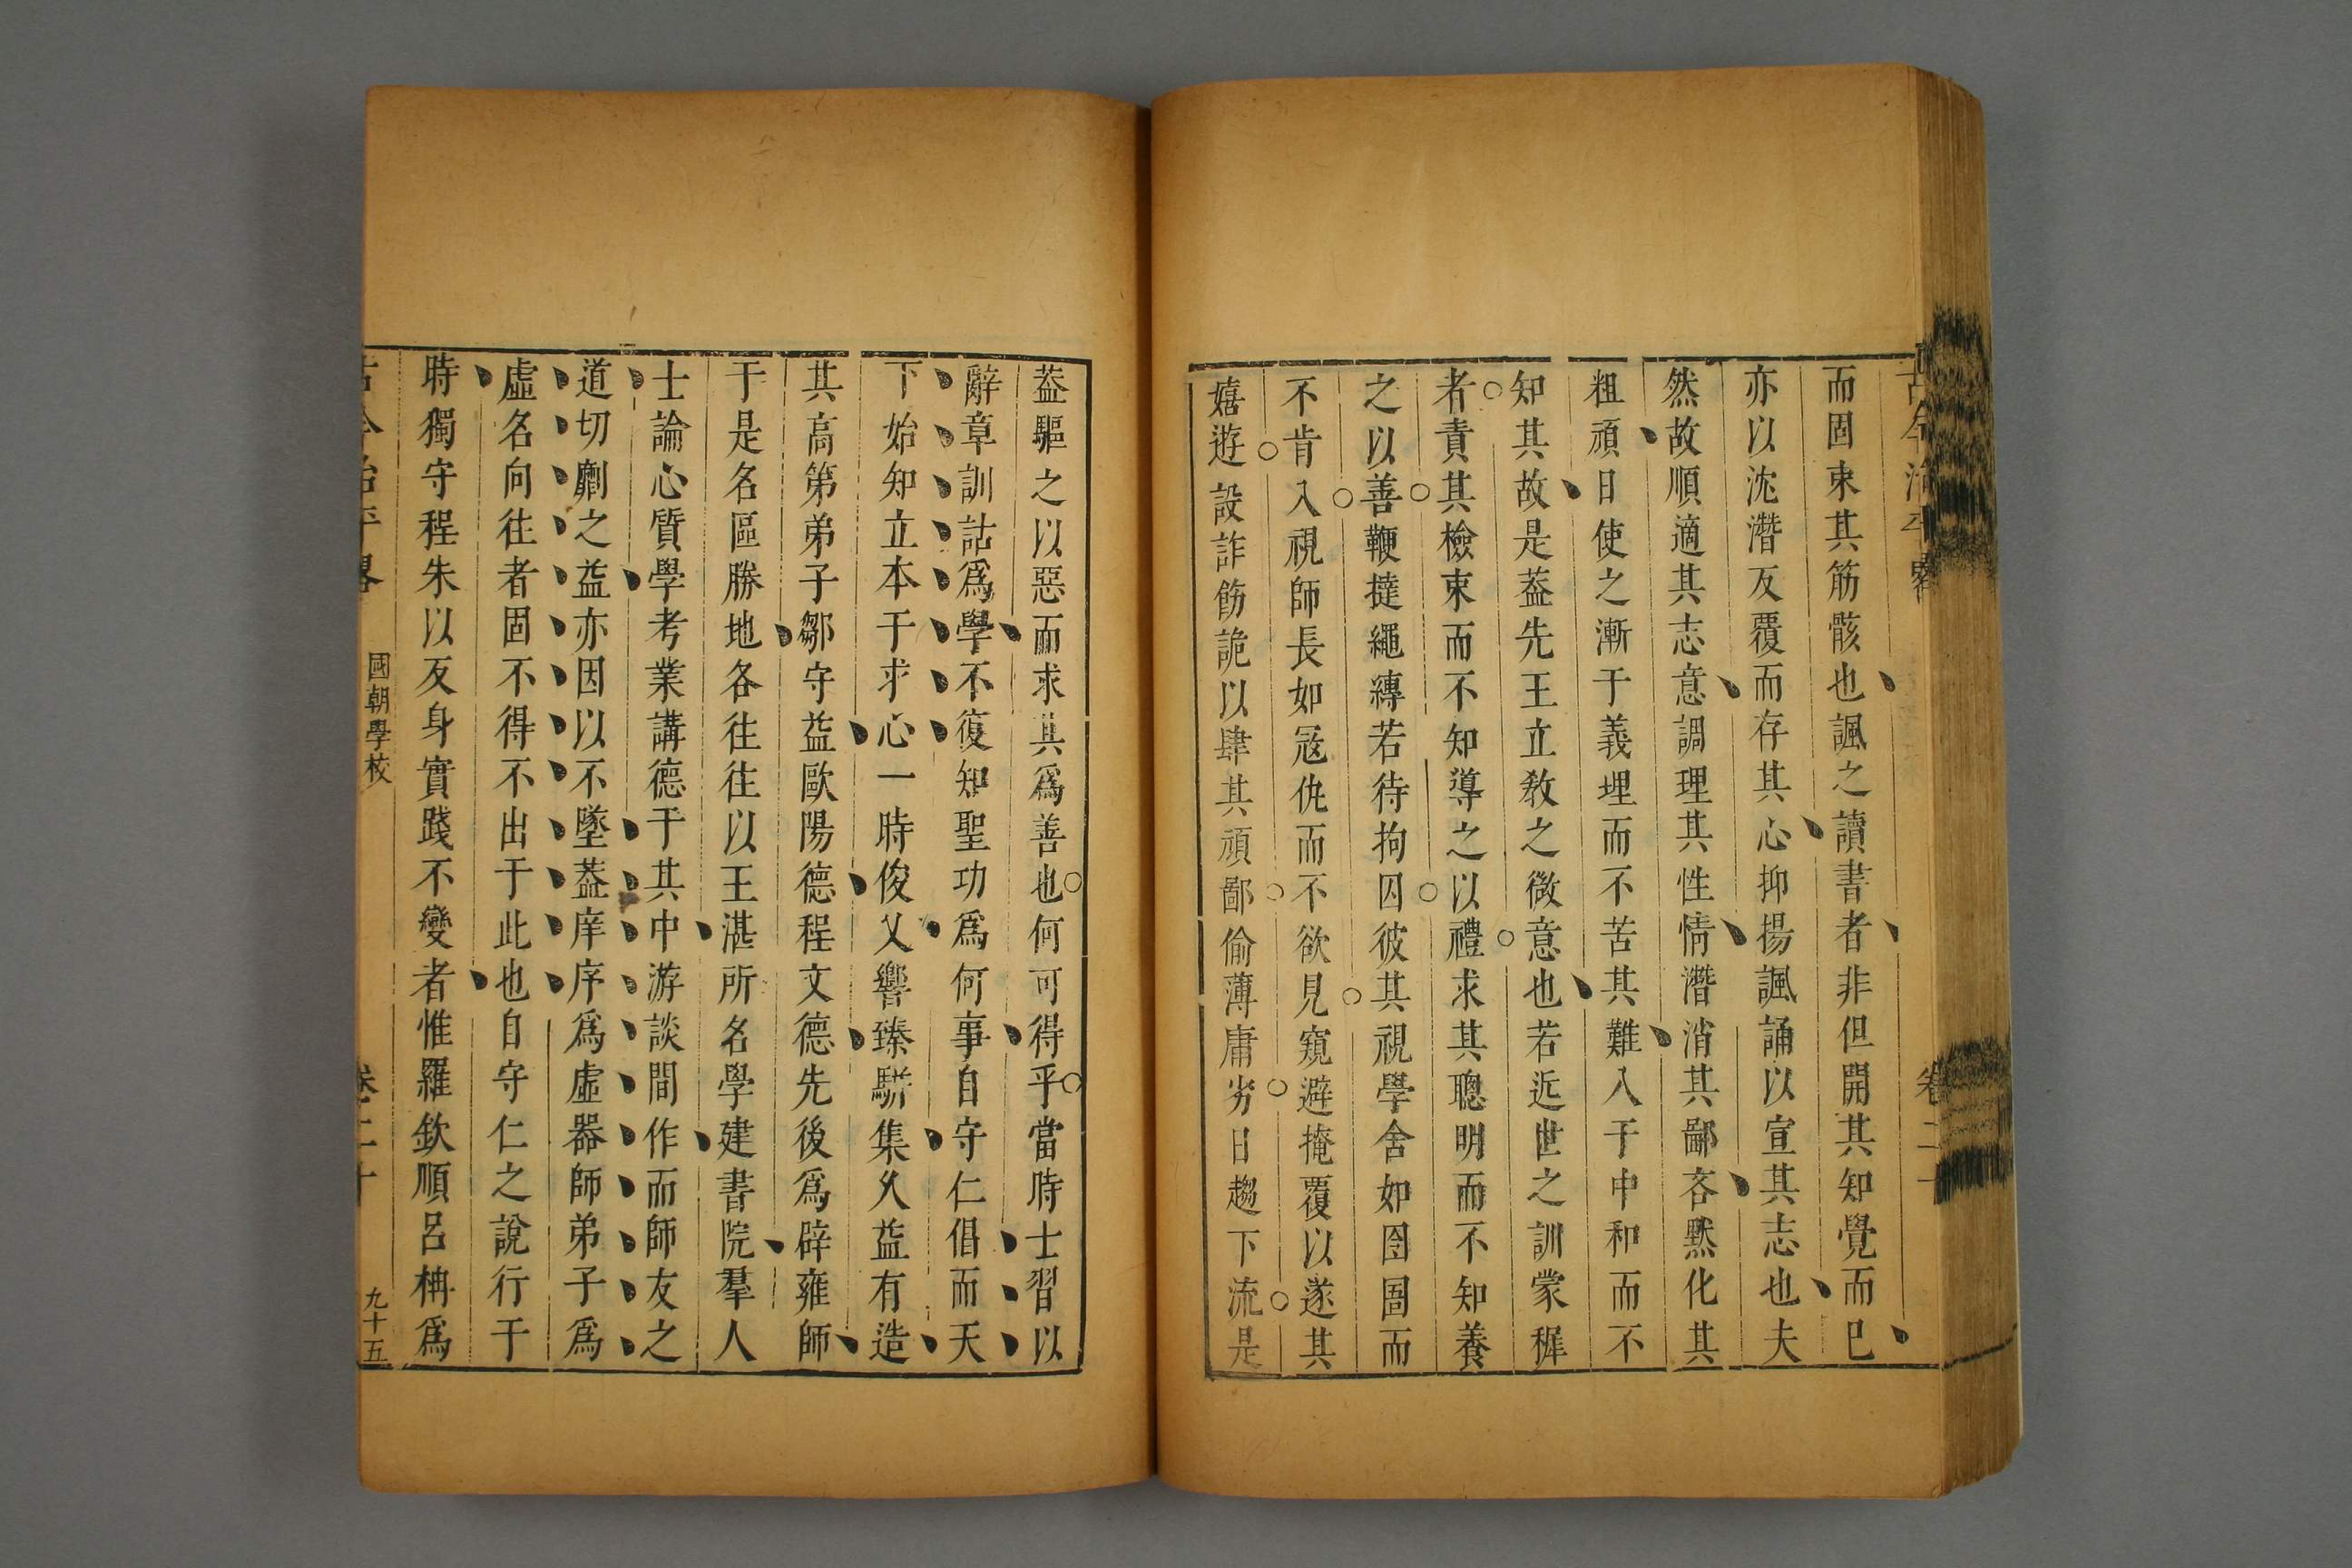 古今治平畧
卷二十
而固束其筋骸也諷之讀書者非但開其知覺而已
亦以沈潛反覆而存其心抑揚諷誦以宣其志也夫
然故順適其志意調理其性情潛消其鄙吝黙化其
粗頑日使之漸于義理而不苦其難入于中和而不
知其故是葢先王立教之微意也若近世之訓蒙穉
者責其檢束而不知導之以禮求其聰明而不知養
之以善鞭撻繩縛若待拘囚彼其視學舍如囹圄而
不肯入視師長如冦仇而不欲見窺避掩覆以遂其
嬉遊設詐飾詭以肆其頑鄙偷薄庸劣日趨下流是
葢驅之以惡而求其爲善也何可得乎當時士習以
辭章訓詁爲學不復知聖功爲何事自守仁倡而天
下始知立本于求心一時俊乂響臻騈集久益有造
其高第弟子鄒守益歐陽德程文德先後爲辟雍師
于是名區勝地各往往以王湛所名學建書院羣人
士論心質學考業講德于其中游談間作而師友之
道切劘之益亦因以不墜葢庠序爲虛器師弟子爲
虛名向往者固不得不出于此也自守仁之說行于
時獨守程朱以反身實踐不變者惟羅欽順呂柟爲
古今治平畧
國朝學校
卷二十
九十五